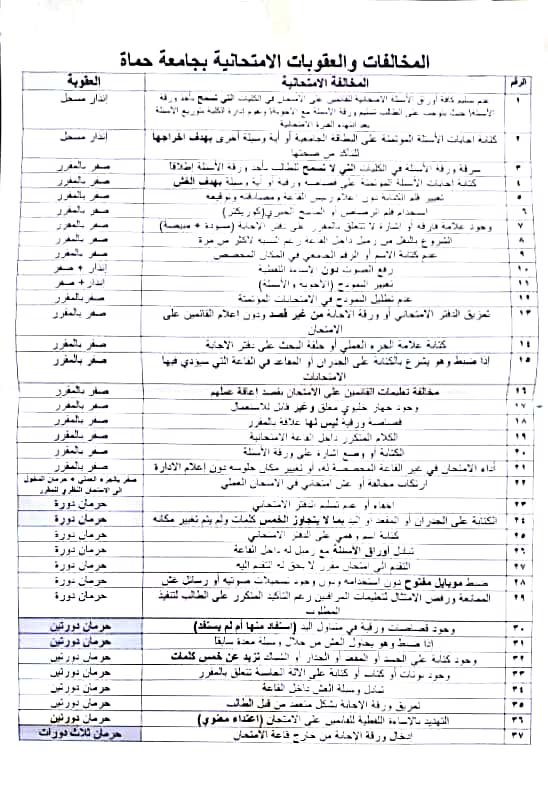 المخالفات والعقوبات الامتحانية بجامعة حماة
الرقم المخالفة الامتحانية العقوبة
١ عدم تسليم كافة أوراق الأسئلة الامتحانية للقائمين على الامتحان في الكليات التي تسمح بأخذ ورقة إنذار مسجل
الأسئلة( حيث يتوجب على الطالب تسليم ورقة الأسئلة مع الاجوبة) وتقوم إدارة الكلية بتوزيع الأسئلة
بعد انتهاء الفترة الامتحانية
٢ كتابة اجابات الأسئلة المؤتمتة على البطاقة الجامعية أو أية وسيلة أخرى بهدف اخراجها إنذار مسجل
للتأكد من صحتها
٣ سرقة ورقة الأسئلة في الكليات التي لا تسمح للطالب بأخذ ورقة الأسئلة إطلاقاً صفر بالمقرر
٤ كتابة اجابات الأسئلة المؤتمتة على قصاصة ورقية أو أية وسيلة بهدف الغش صفر بالمقرر
٥ تغيير قلم الكتابة دون اعلام رئيس القاعة ومصادقته وتوقيعه صفر بالمقرر
٦ استخدام قلم الرصاص أو الماسح الحبري(كوريكتر) صفر بالمقرر
٧ وجود علامة فارقة أو اشارة لا تتعلق بالمقرر على دفتر الاجابة (مسودة + مبيضة) صفر بالمقرر
٨ الشروع بالنقل من زميل داخل القاعة رغم التنبيه لأكثر من مرة صفر بالمقرر
٩ عدم كتابة الاسم أو الرقم الجامعي في المكان المخصص صفر بالمقرر
١٠ رفع الصوت دون الاساءة اللفظية إنذار + صفر
١١ تغيير النموذج (الاجوبة والأسئلة) انذار + صفر
١٢ عدم تظليل النموذج في الامتحانات المؤتمتة صفر بالمقرر
١٣ تمزيق الدفتر الامتحاني أو ورقة الاجابة من غير قصد ودون اعلام القائمين على صفر بالمقرر
الامتحان
١٤ كتابة علامة الجزء العملي أو حلقة البحث على دفتر الاجابة صفر بالمقرر
١٥ إذا ضبط وهو يشرع بالكتابة على الجدران أو المقاعد في القاعة التي سيؤدي فيها صفر بالمقرر
الامتحانات
١٦ مخالفة تعليمات القائمين على الامتحان بقصد إعاقة عملهم صفر بالمقرر
١٧ وجود جهاز خليوي مغلق وغير قابل للاستعمال صفر بالمقرر
١٨ قصاصة ورقية ليس لها علاقة بالمقرر صفر بالمقرر
١٩ الكلام المتكرر داخل القاعة الامتحانية صفر بالمقرر
٢٠ الكتابة أو وضع اشارة على ورقة الأسئلة صفر بالمقرر
٢١ أداء الامتحان في غير القاعة المخصصة له، أو تغيير مكان جلوسه دون إعلام الادارة صفر بالمقرر
٢٢ ارتكاب مخالفة أو غش امتحاني في الامتحان العملي صفر بالجزء العملي + حرمان الدخول
الى الامتحان النظري للمقرر
٢٣ اخفاء أو عدم تسليم الدفتر الامتحاني حرمان دورة
٢٤ الكتابة على الجدران أو المقعد أو اليد بما لا يتجاوز الخمس كلمات ولم يتم تغيير مكانه حرمان دورة
٢٥ كتابة اسم وهمي على الدفتر الامتحاني حرمان دورة
٢٦ تبادل أوراق الأسئلة مع زميل له داخل القاعة حرمان دورة
٢٧ التقدم الى امتحان مقرر لا يحق له التقدم اليه حرمان دورة
٢٨ ضبط موبايل مفتوح دون استخدامه ودون وجود تسجيلات صوتية أو رسائل غش حرمان دورة
٢٩ الممانعة ورفض الامتثال لتعليمات المراقبين رغم التأكيد المتكرر على الطالب لتنفيذ حرمان دورة
المطلوب
٣٠ وجود قصاصات ورقية في متناول اليد (استفاد منها أم لم يستفد) حرمان دورتين
٣١ إذا ضبط وهو يحاول الغش من خلال وسيلة معدة سابقا حرمان دورتين
٣٢ وجود كتابة على الجسد أو المقعد أو الجدار أو الشباك تزيد عن خمس كلمات حرمان دورتين
٣٣ وجود نوتات أو كتاب أو كتابة على الآلة الحاسبة تتعلق بالمقرر حرمان دورتين
٣٤ تبادل وسيلة الغش داخل القاعة حرمان دورتين
٣٥ تمزيق ورقة الاجابة بشكل متعمد من قبل الطالب حرمان دورتين
٣٦ التهديد بالاساءة اللفظية للقائمين على الامتحان (اعتداء معنوي) حرمان دورتين
٣٧ إدخال ورقة الاجابة من خارج قاعة الامتحان حرمان ثلاث دورات